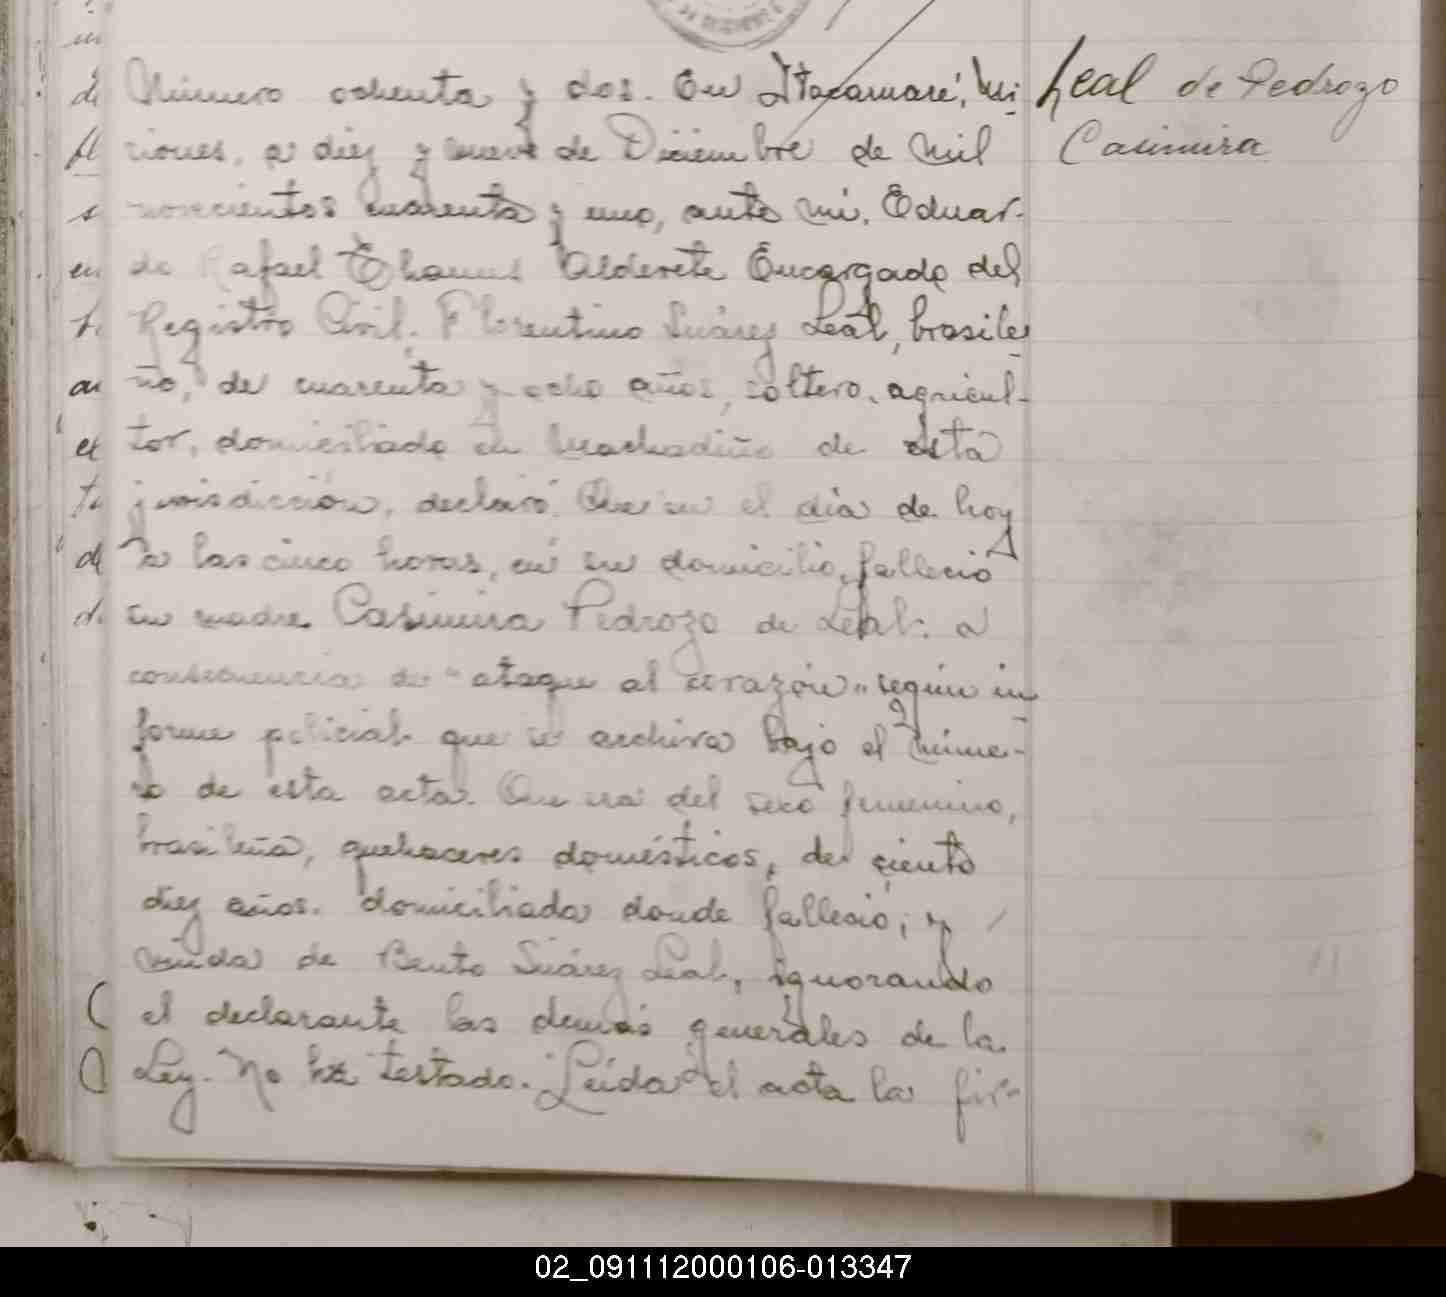 Leal de Pedrozo
Casimira
Número ochenta y dos. En Itacaruaré, Mi-
siones, a diez y nueve de Diciembre de mil
novecientos cuarenta y uno, ante mi, Eduar-
do Rafael Alderete Encargado del
Registro Civil, Florentino Suárez Leal, brasile-
ño, de cuarenta y ocho años, soltero, agricul-
tor, domiciliado en Machadiño de esta
jurisdicción, declaró: Que en el día de hoy
a las cinco horas, en su domicilio, falleció
su madre Casimira Pedrozo de Leal: a
consecuencia de "ataque al corazón" según in-
forme policial que se archiva bajo el núme-
ro de esta acta. Que era del sexo femenino,
brasileña, quehaceres domésticos, de ciento
diez años. domiciliada donde falleció; y
viuda de Bento Suárez Leal, ignorando
el declarante las demás generales de la
Ley. No ha testado. Leída el acta la fir-
02_091112000106-013347